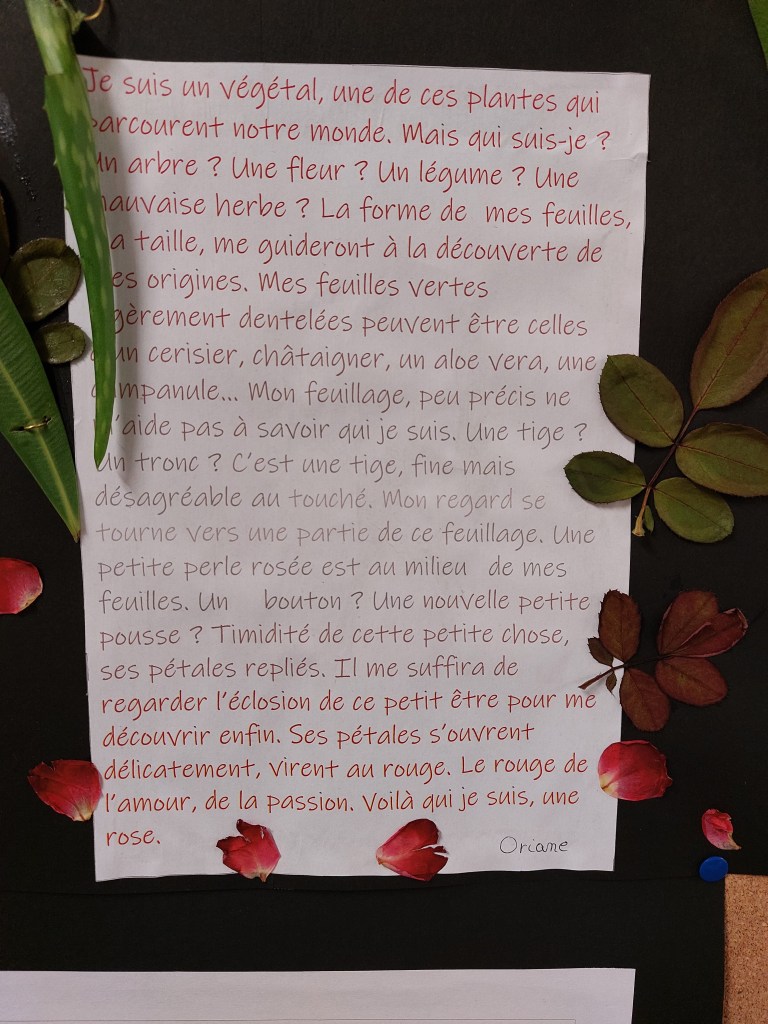 Je suis un végétal, une de ces plantes qui
parcourent notre monde. Mais qui suis-je ?
Un arbre ? Une fleur ? Un légume ? Une
mauvaise herbe ? La forme de mes feuilles,
ma taille, me guideront à la découverte de
mes origines. Mes feuilles vertes
légèrement dentelées peuvent être celles
d'un cerisier, châtaigner, un aloe vera, une
campanule... Mon feuillage, peu précis ne
m'aide pas à savoir qui je suis. Une tige ?
Un tronc ? C'est une tige, fine mais
désagréable au touché. Mon regard se
tourne vers une partie de ce feuillage. Une
petite perle rosée est au milieu de mes
feuilles. Un bouton ? Une nouvelle petite
pousse ? Timidité de cette petite chose,
ses pétales repliés. Il me suffira de
regarder l'éclosion de ce petit être pour me
découvrir enfin. Ses pétales s'ouvrent
délicatement, virent au rouge. Le rouge de
l'amour, de la passion. Voilà qui je suis, une
rose.
Oriane